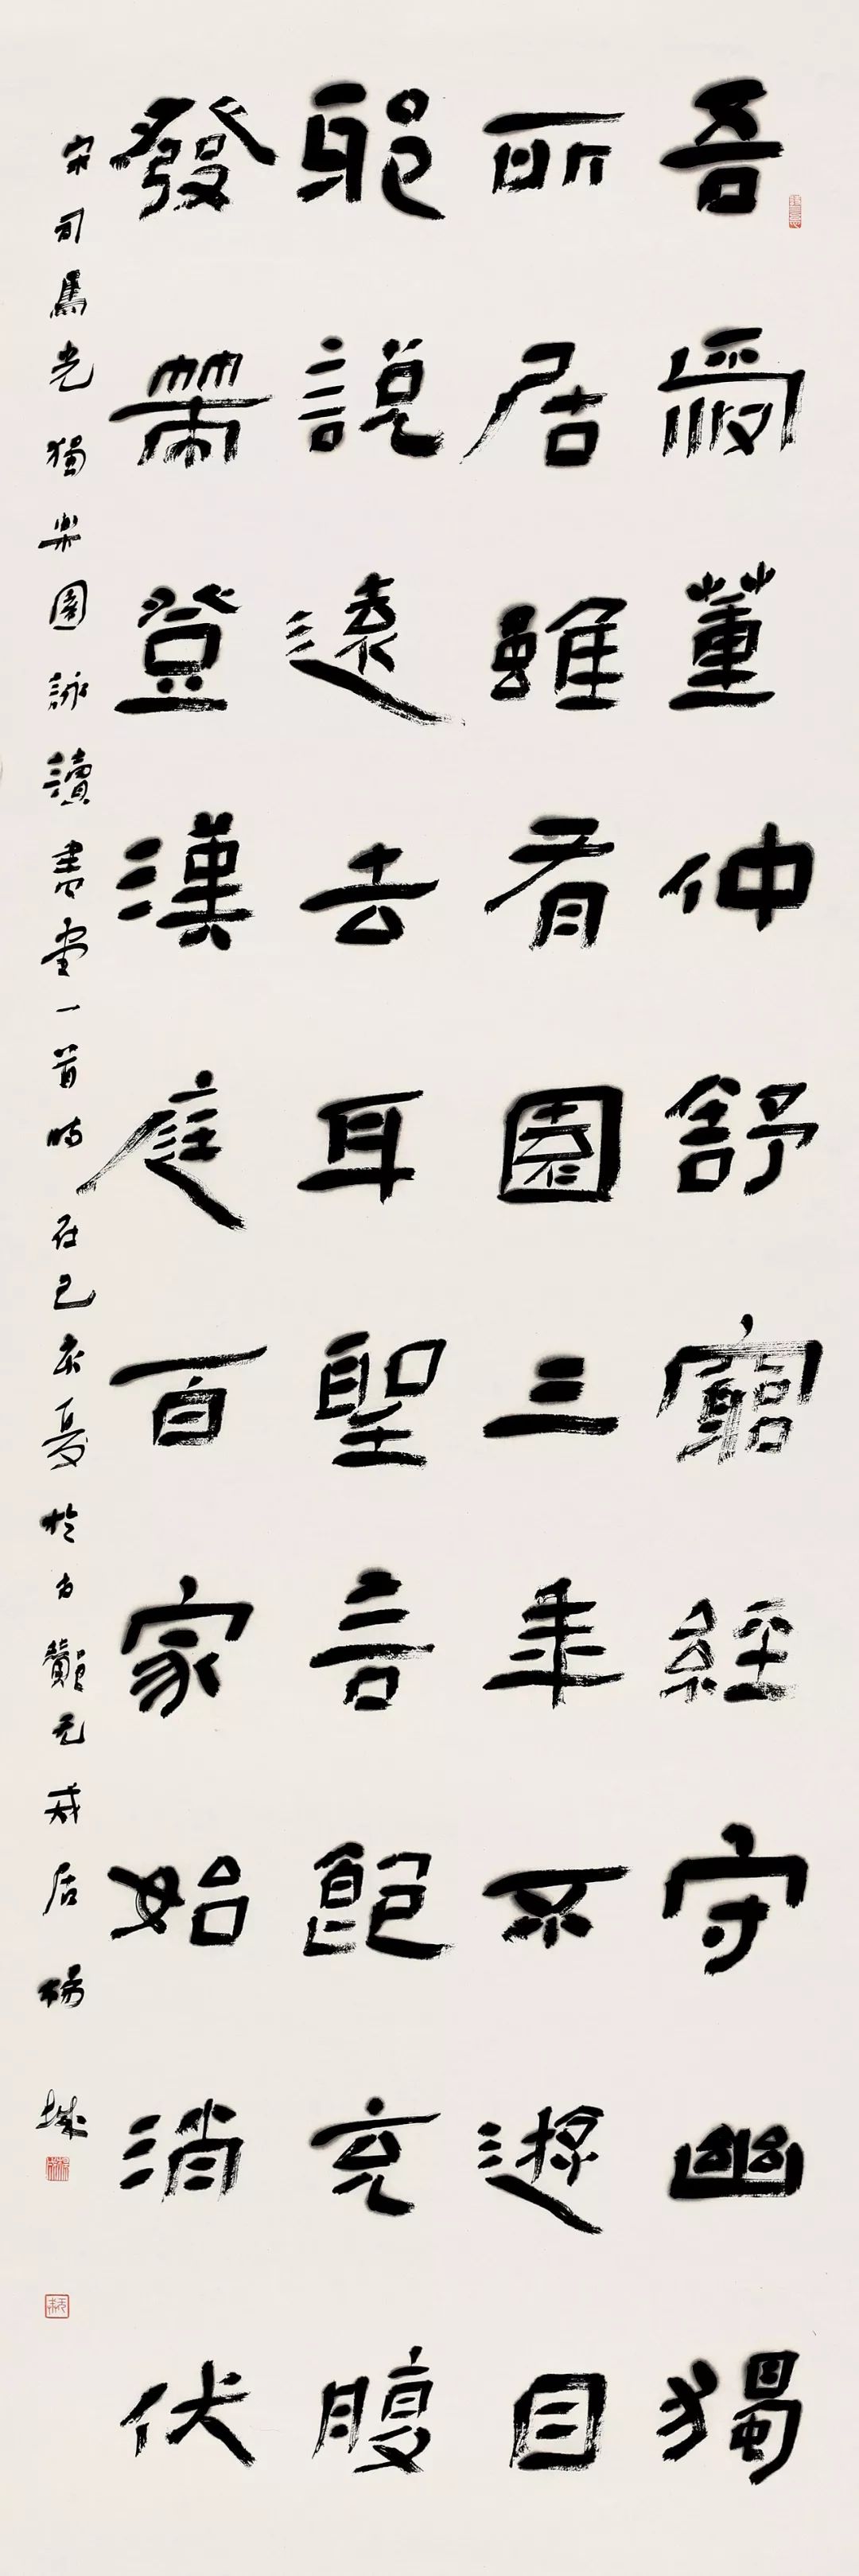 吾愛董仲舒窮經守幽獨
所居雖有園三年不遊目
邪說遠去耳聖言飽充腹
發策登漢庭百家始消伏
宋司馬光獨樂園詠讀書堂一首時在己亥夏於古鄭无戒居楊城